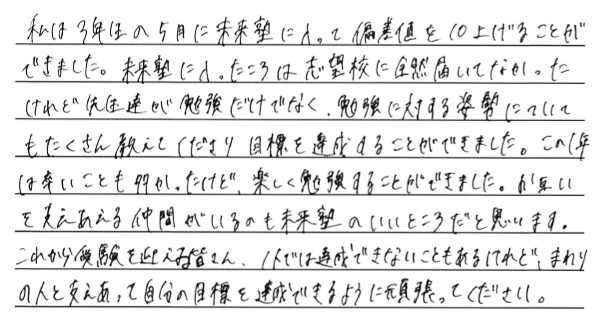 私は3年生の5月に未来塾に入って偏差値を10上げることが
できました。未来塾に入ったころは志望校に全然届いてなかった
けれど先生達が勉強だけでなく、勉強に対する姿勢についても
もたくさん教えてくださり目標を達成することができました。この1年
は辛いことも多かったけど、楽しく勉強することができました。お互い
を支えあえる仲間がいるのも未来塾のいいところだと思います。
これから受験を迎える皆さん、1人では達成できないこともあるけれど、まわり
の人と支えあって自分の目標を達成できるように頑張ってください。